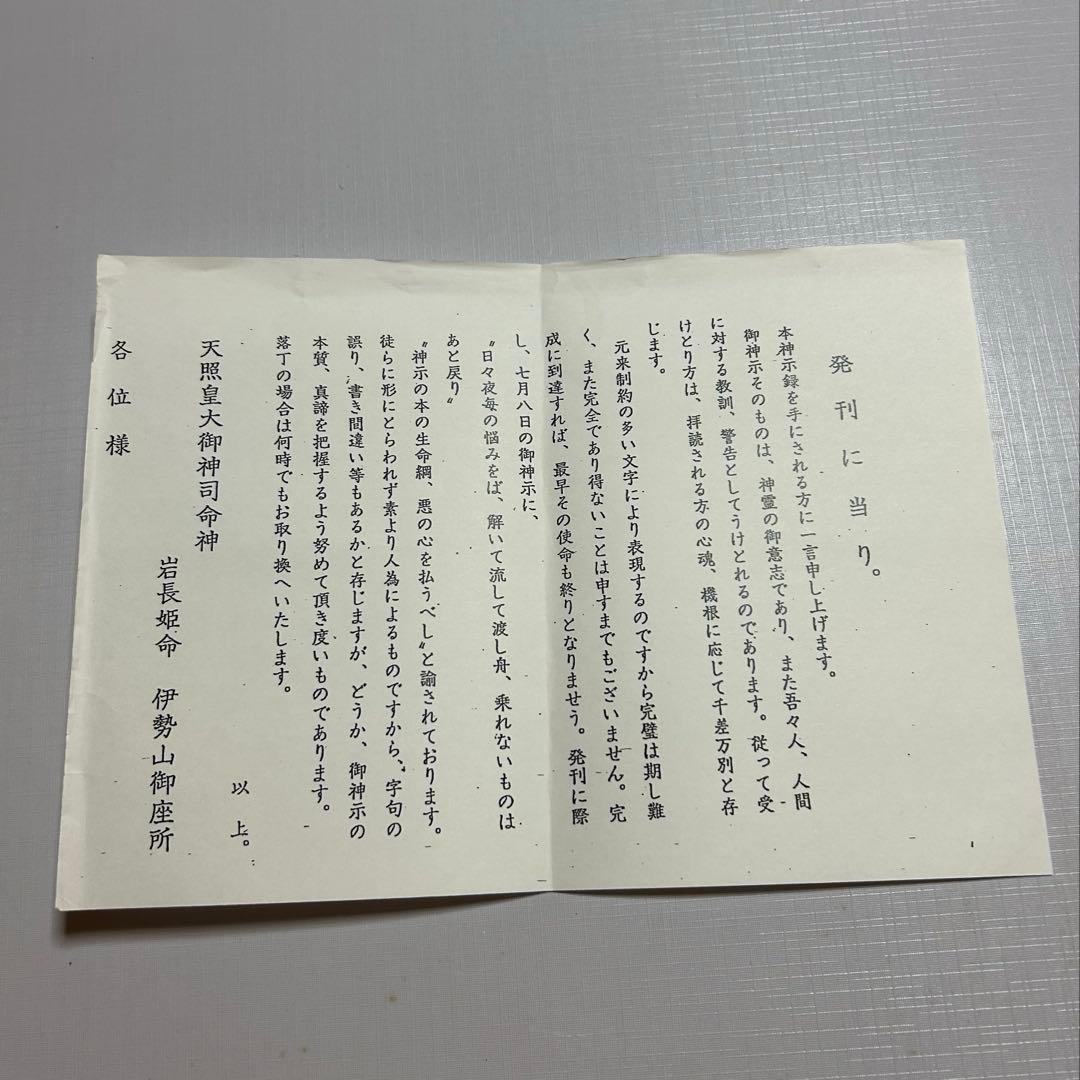 発刊に当り。
本神示録を手にされる方に一言申し上げます。
御神示そのものは、神霊の御意志であり、また吾々人、人間
に対する教訓、警告としてうけとれるのであります。従って受
けとり方は、拝読される方の心魂、機根に応じて千差万別と存
じます。
元来制約の多い文字により表現するのですから完璧は期し難
く、また完全であり得ないことは申すまでもございません。完
成に到達すれば、最早その使命も終りとなりませう。発刊に際
し、七月八日の御神示に、
〝日々夜毎の悩みをば、解いて流して渡し舟、乗れないものは
あと戻り〟
〝神示の本の生命綱、悪の心を払うべし〟と諭されております。
徒らに形にとらわれず素より人為によるものですから、字句の
誤り、書き間違い等もあるかと存じますが、どうか、御神示の
本質、真諦を把握するよう努めて頂き度いものであります。
落丁の場合は何時でもお取り換へいたします。
以上。
天照皇大御神司命神
岩長姫命 伊勢山御座所
各位様